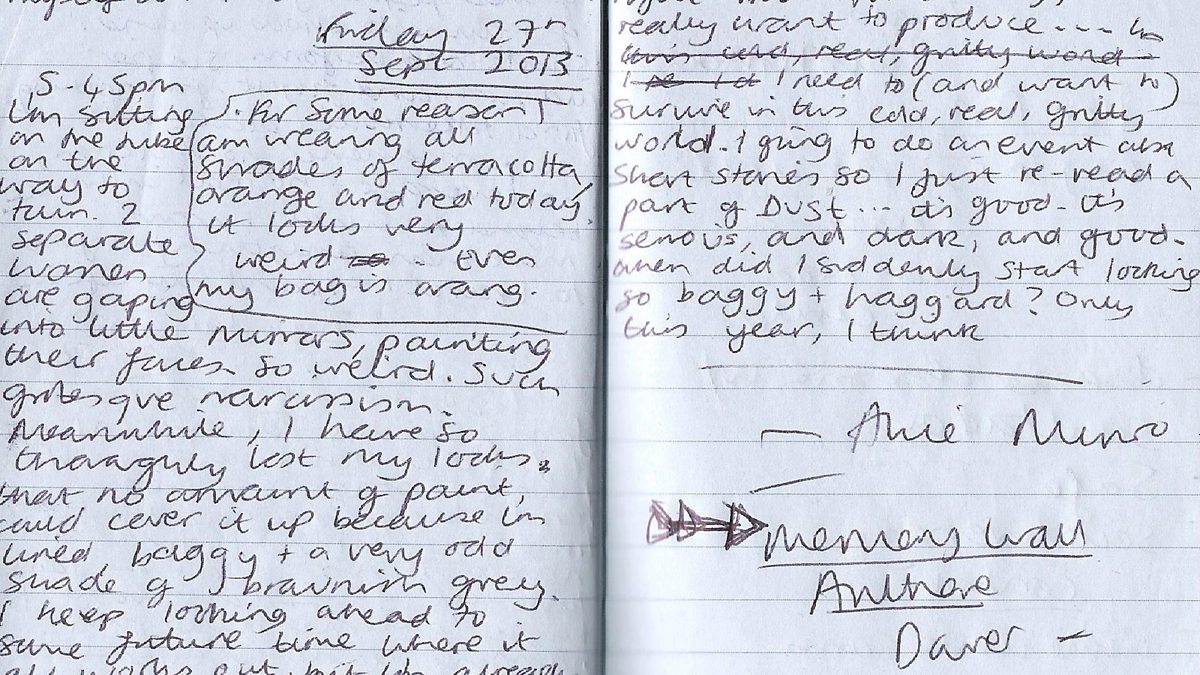 Friday 27th
Sept 2013
5-45pm
I'm sitting
on the tube
on the
way to
turn. 2
separate
women
are gaping
into little mirrors, painting
their faces so weird. Such
grotesque narcissism.
Meanwhile, I have so
thoroughly lost my looks
that no amount of paint,
could cover it up because I'm
lined, baggy + a very odd
shade of brownish grey.
I keep looking ahead to
some future time where it
all works out, but it's already
. For some reason I
am wearing all
shades of terracotta
orange and red today.
it looks very
weird . Even
my bag is orang.
really want to produce .... In
this cold, real, gritty world -
I I need to (and want to)
survive in this cold, real, gritty
world. I going to do an event abt
short stories so I just re-read a
part of DUST ... it's good - it's
serious, and dark, and good.
when did I suddenly start looking
so baggy + haggard? Only
this year, I think
— Alice Munro
—
Memory Wall
Anthony
Doerr -